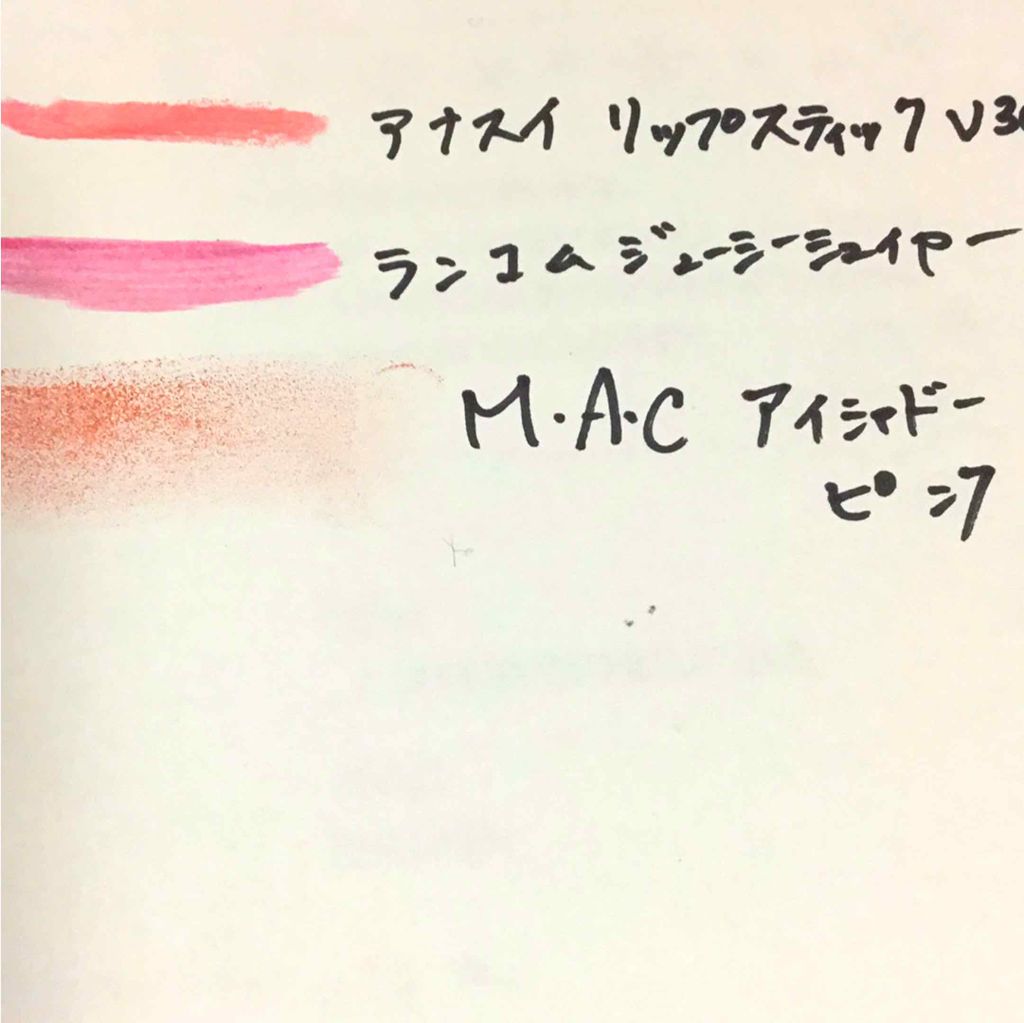 アナスイ リップスティック V3
ランコム ジューシーシェイヤー
M・A・C アイシャドー
ピンク